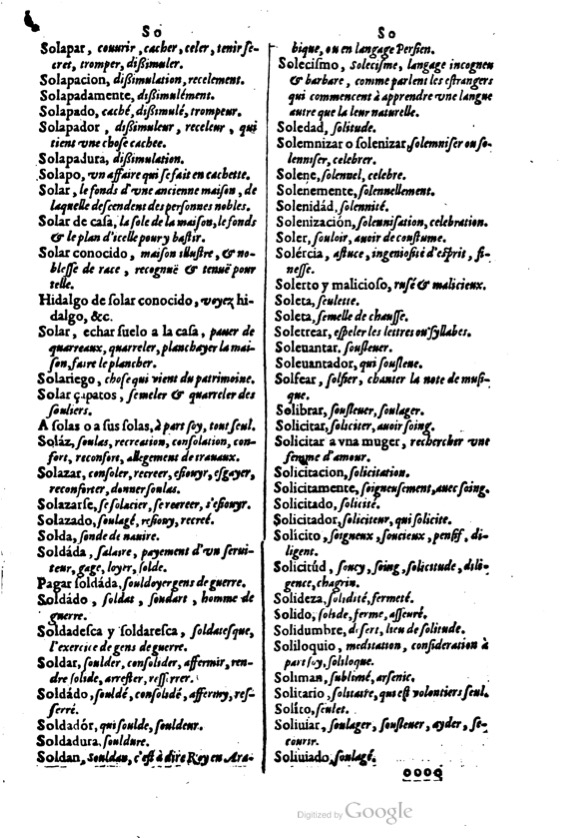 So
Solapar, couurir, cacher, celer, tenir se-
cret, tromper, dißimuler.
Solapacion, dißimulation, recelement.
Solapadamente, dißimulément.
Solapado, caché, dißimulé, trompeur.
Solapador, dißimuleur, receleur, qui
tient vne chose cachee.
Solapadura, dißimulation.
Solapo, vn affaire qui se fait en cachette.
Solar, le fonds d'vne ancienne maison, de
laquelle descendent des personnes nobles.
Solar de casa, la sole de la maison, le fonds
& le plan d'icelle pour y bastir.
Solar conocido, maison illustre, & no-
blesse de race, recognuë & tenuë pour
telle.
Hidalgo de solar conocido, voyez hi-
dalgo, &c.
Solar, echar suelo a la casa, pauer de
quarreaux, quarreler, planchayer la mai-
son, faire le plancher.
Solariego, chose qui vient du patrimoine.
Solar çapatos, semeler & quarreler des
souliers.
A solas o a sus solas, à part soy, tout seul.
Soláz, soulas, recreation, consolation, con-
fort, reconfort, allegement de trauaux.
Solazar, consoler, recreer, esiouyr, esgayer,
reconforter, donner soulas.
Solazarse, se solacier, se recreer, s'esiouyr.
Solazado, soulagé, resiouy, recreé.
Solda, sonde de nauire.
Soldáda, salaire, payement d'vn serui-
teur, gage, loyer, solde.
Pagar soldáda, souldoyer gens de guerre.
Soldádo, soldat, soudart, homme de
guerre.
Soldadesca y soldaresca, soldatesque,
l'exercice de gens de guerre.
Soldar, soulder, consolider, affermir, ren-
dre solide, arrester, resserrer.
Soldádo, souldé, consolidé, affermy, res-
serré.
Soldadór, qui soulde, souldeur.
Soldadura, souldure.
Soldan, souldan, c'est à dire Roy en Ara-
So
bique, ou en langage Persien.
Solecismo, solecisme, langage incogneu
& barbare, comme parlent les estrangers
qui commencent à apprendre vne langue
autre que la leur naturelle.
Soledad, solitude.
Solemnizar o solenizar, solemniser ou so-
lenniser, celebrer.
Solene, solennel, celebre.
Solenemente, solennellement.
Solenidád, solennité.
Solenización, solennisation, celebration.
Soler, souloir, auoir de coustume.
Solércia, astuce, ingeniosité d'esprit, fi-
nesse.
Solerto y malicioso, rusé & malicieux.
Soleta, seulette.
Soleta, semelle de chausse.
Soletrear, espeler les lettres ou syllabes.
Soleuantar, sousleuer.
Soleuantador, qui sousleue.
Solfear, solfier, chanter la note de musi-
que.
Solibrar, sousleuer, soulager.
Solicitar, soliciter, auoir soing.
Solicitar a vna muger, rechercher vne
femme d'amour.
Solicitacion, solicitation.
Solicitamente, soigneusement, auec soing.
Solicitado, solicité.
Solicitador, soliciteur, qui solicite.
Solícito, soigneux, soucieux, pensif, di-
ligent.
Solicitúd, soucy, soing, solicitude, dili-
gence, chagrin.
Solideza, solidité, fermeté.
Solido, solide, ferme, asseuré.
Solidumbre, desert, lieu de solitude.
Soliloquio, meditation, consideration à
part soy, soliloque.
Soliman, sublimé, arsenic.
Solitario, solitaire, qui est volontiers seul.
Solito, seulet.
Soliuiar, soulager, sousleuer, ayder, se-
courir.
Soliuiado, soulagé.
oooo
Digitized by Google